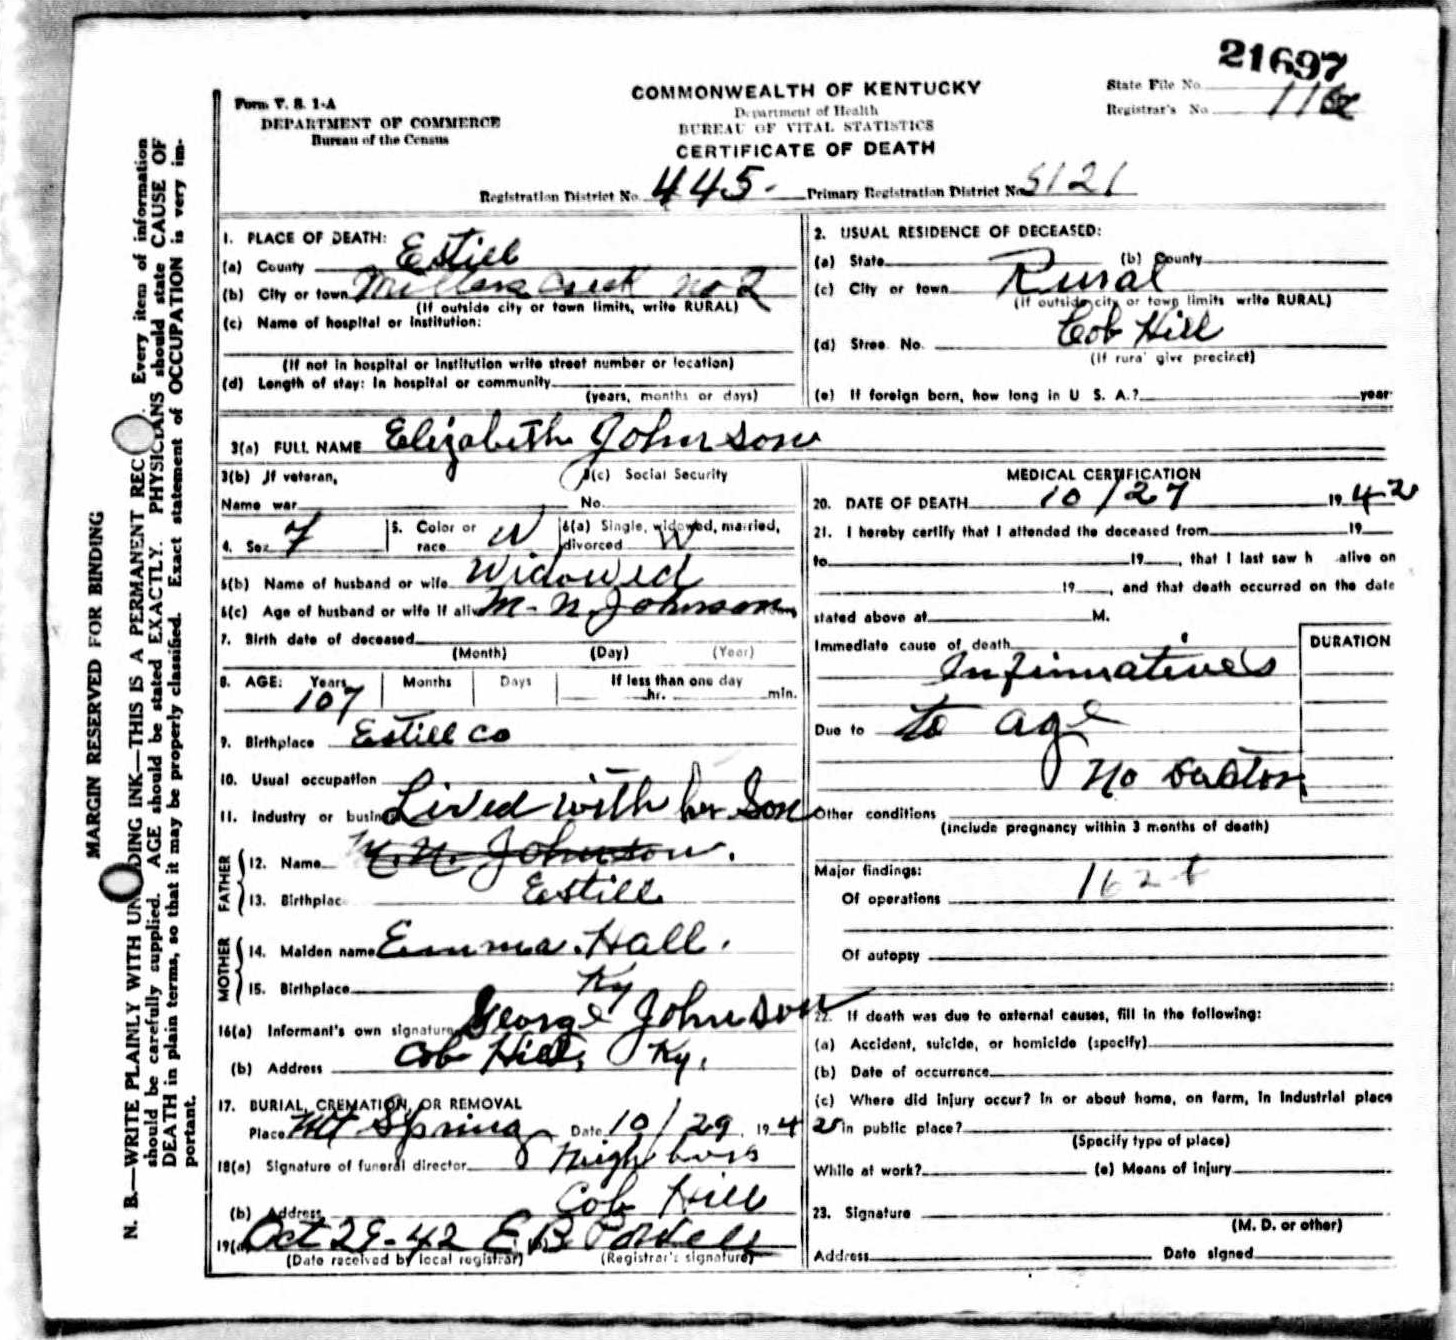 21697
Form V. S. 1-A
DEPARTMENT OF COMMERCE
Bureau of the Census
COMMONWEALTH OF KENTUCKY
Department of Health
BUREAU OF VITAL STATISTICS
CERTIFICATE OF DEATH
State File No.
Registrar's No.
Registration District No. 445- Primary Registration District No. 5121
MARGIN RESERVED FOR BINDING
N. B.—WRITE PLAINLY WITH UN DING INK—THIS IS A PERMANENT REC . Every item of information
should be carefully supplied. AGE should be stated EXACTLY. PHYSICIANS should state CAUSE OF
DEATH in plain terms, so that it may be properly classified. Exact statement of OCCUPATION is very im-
portant.
1. PLACE OF DEATH:
(a) County Estill
(b) City or town Millers Creek No 2
(If outside city or town limits, write RURAL)
(c) Name of hospital or institution:
(If not in hospital or institution write street number or location)
(d) Length of stay: In hospital or community
(years, months or days)
2. USUAL RESIDENCE OF DECEASED:
(a) State (b) County
(c) City or town Rural
(If outside city or town limits write RURAL)
(d) Stree No. Cob Hill
(If rura' give precinct)
(e) If foreign born, how long in U S. A.? year
3(a) FULL NAME Elizabeth Johnson
3(b) If veteran,
Name war
3(c) Social Security
No.
4. Sex F
5. Color or
race W
6(a) Single, widowed, married,
divorced W
6(b) Name of husband or wife Widowed
6(c) Age of husband or wife if alive M. N. Johnson
7. Birth date of deceased
(Month) (Day) (Year)
8. AGE: Years Months Days If less than one day
107 hr. min.
9. Birthplace Estill Co
10. Usual occupation
11. Industry or busin Lived with her Son
FATHER
12. Name M. N. Johnson.
13. Birthplac Estill
MOTHER
14. Maiden name Emma Hall.
15. Birthplace Ky
16(a) Informant's own signature George Johnson
(b) Address Cob Hill, Ky.
17. BURIAL, CREMATION, OR REMOVAL
Place Mt Spring Date 10/29, 1942
18(a) Signature of funeral director Neighbors
(b) Address Cob Hill
19(a) Oct 29-42 E. B.
(Date received by local registrar) (Registrar's signature)
MEDICAL CERTIFICATION
20. DATE OF DEATH 10/27 1942
21. I hereby certify that I attended the deceased from 19
to 19 , that I last saw h alive on
19 , and that death occurred on the date
stated above at M.
Immediate cause of death DURATION
Infirmative's
Due to to age
No Doctor
Other conditions
(include pregnancy within 3 months of death)
Major findings:
Of operations
Of autopsy
22. If death was due to external causes, fill in the following:
(a) Accident, suicide, or homicide (specify)
(b) Date of occurrence
(c) Where did injury occur? In or about home, on farm, in industrial place
in public place?
(Specify type of place)
While at work? (e) Means of injury
23. Signature
(M. D. or other)
Address Date signed